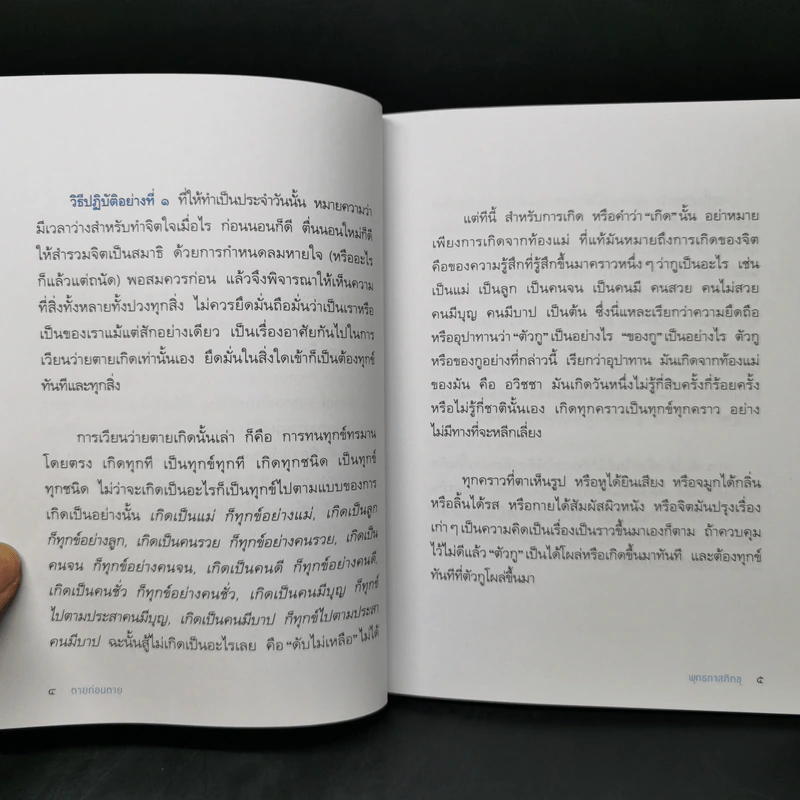 วิธีปฏิบัติอย่างที่ ๑ ที่ให้ทำเป็นประจำวันนั้น หมายความว่า
มีเวลาว่างสำหรับทำจิตใจเมื่อไร ก่อนนอนก็ดี ตื่นนอนใหม่ก็ดี
ให้สำรวมจิตเป็นสมาธิ ด้วยการกำหนดลมหายใจ (หรืออะไร
ก็แล้วแต่ถนัด) พอสมควรก่อน แล้วจึงพิจารณาให้เห็นความ
ที่สิ่งทั้งหลายทั้งปวงทุกสิ่ง ไม่ควรยึดมั่นถือมั่นว่าเป็นเราหรือ
เป็นของเราแม้แต่สักอย่างเดียว เป็นเรื่องอาศัยกันไปในการ
เวียนว่ายตายเกิดเท่านั้นเอง ยึดมั่นในสิ่งใดเข้าก็เป็นต้องทุกข์
ทันทีและทุกสิ่ง
การเวียนว่ายตายเกิดนั้นเล่า ก็คือ การทนทุกข์ทรมาน
โดยตรง เกิดทุกที เป็นทุกข์ทุกที เกิดทุกชนิด เป็นทุกข์
ทุกชนิด ไม่ว่าจะเกิดเป็นอะไรก็เป็นทุกข์ไปตามแบบของการ
เกิดเป็นอย่างนั้น เกิดเป็นแม่ ก็ทุกข์อย่างแม่, เกิดเป็นลูก
ก็ทุกข์อย่างลูก, เกิดเป็นคนรวย ก็ทุกข์อย่างคนรวย, เกิดเป็น
คนจน ก็ทุกข์อย่างคนจน, เกิดเป็นคนดี ก็ทุกข์อย่างคนดี,
เกิดเป็นคนชั่ว ก็ทุกข์อย่างคนชั่ว, เกิดเป็นคนมีบุญ ก็ทุกข์
ไปตามประสาคนมีบุญ, เกิดเป็นคนมีบาป ก็ทุกข์ไปตามประสา
คนมีบาป ฉะนั้นสู้ไม่เกิดเป็นอะไรเลย คือ “ดับไม่เหลือ” ไม่ได้
๔ ตายก่อนตาย
แต่ทีนี้ สำหรับการเกิด หรือคำว่า “เกิด” นั้น อย่าหมาย
เพียงการเกิดจากท้องแม่ ที่แท้มันหมายถึงการเกิดของจิต
คือของความรู้สึกที่รู้สึกขึ้นมาคราวหนึ่งๆว่ากูเป็นอะไร เช่น
เป็นแม่ เป็นลูก เป็นคนจน เป็นคนมี คนสวย คนไม่สวย
คนมีบุญ คนมีบาป เป็นต้น ซึ่งนี่แหละเรียกว่าความยึดถือ
หรืออุปาทานว่า “ตัวกู” เป็นอย่างไร “ของกู” เป็นอย่างไร ตัวกู
หรือของกูอย่างที่กล่าวนี้ เรียกว่าอุปาทาน มันเกิดจากท้องแม่
ของมัน คือ อวิชชา มันเกิดวันหนึ่งไม่รู้กี่สิบครั้งกี่ร้อยครั้ง
หรือไม่รู้กี่ชาตินั้นเอง เกิดทุกคราวเป็นทุกข์ทุกคราว อย่าง
ไม่มีทางที่จะหลีกเลี่ยง
ทุกคราวที่ตาเห็นรูป หรือหูได้ยินเสียง หรือจมูกได้กลิ่น
หรือลิ้นได้รส หรือกายได้สัมผัสผิวหนัง หรือจิตมันปรุงเรื่อง
เก่าๆ เป็นความคิดเป็นเรื่องเป็นราวขึ้นมาเองก็ตาม ถ้าควบคุม
ไว้ไม่ดีแล้ว “ตัวกู” เป็นได้โผล่หรือเกิดขึ้นมาทันที และต้องทุกข์
ทันทีที่ตัวกูโผล่ขึ้นมา
พุทธทาสภิกขุ ๕